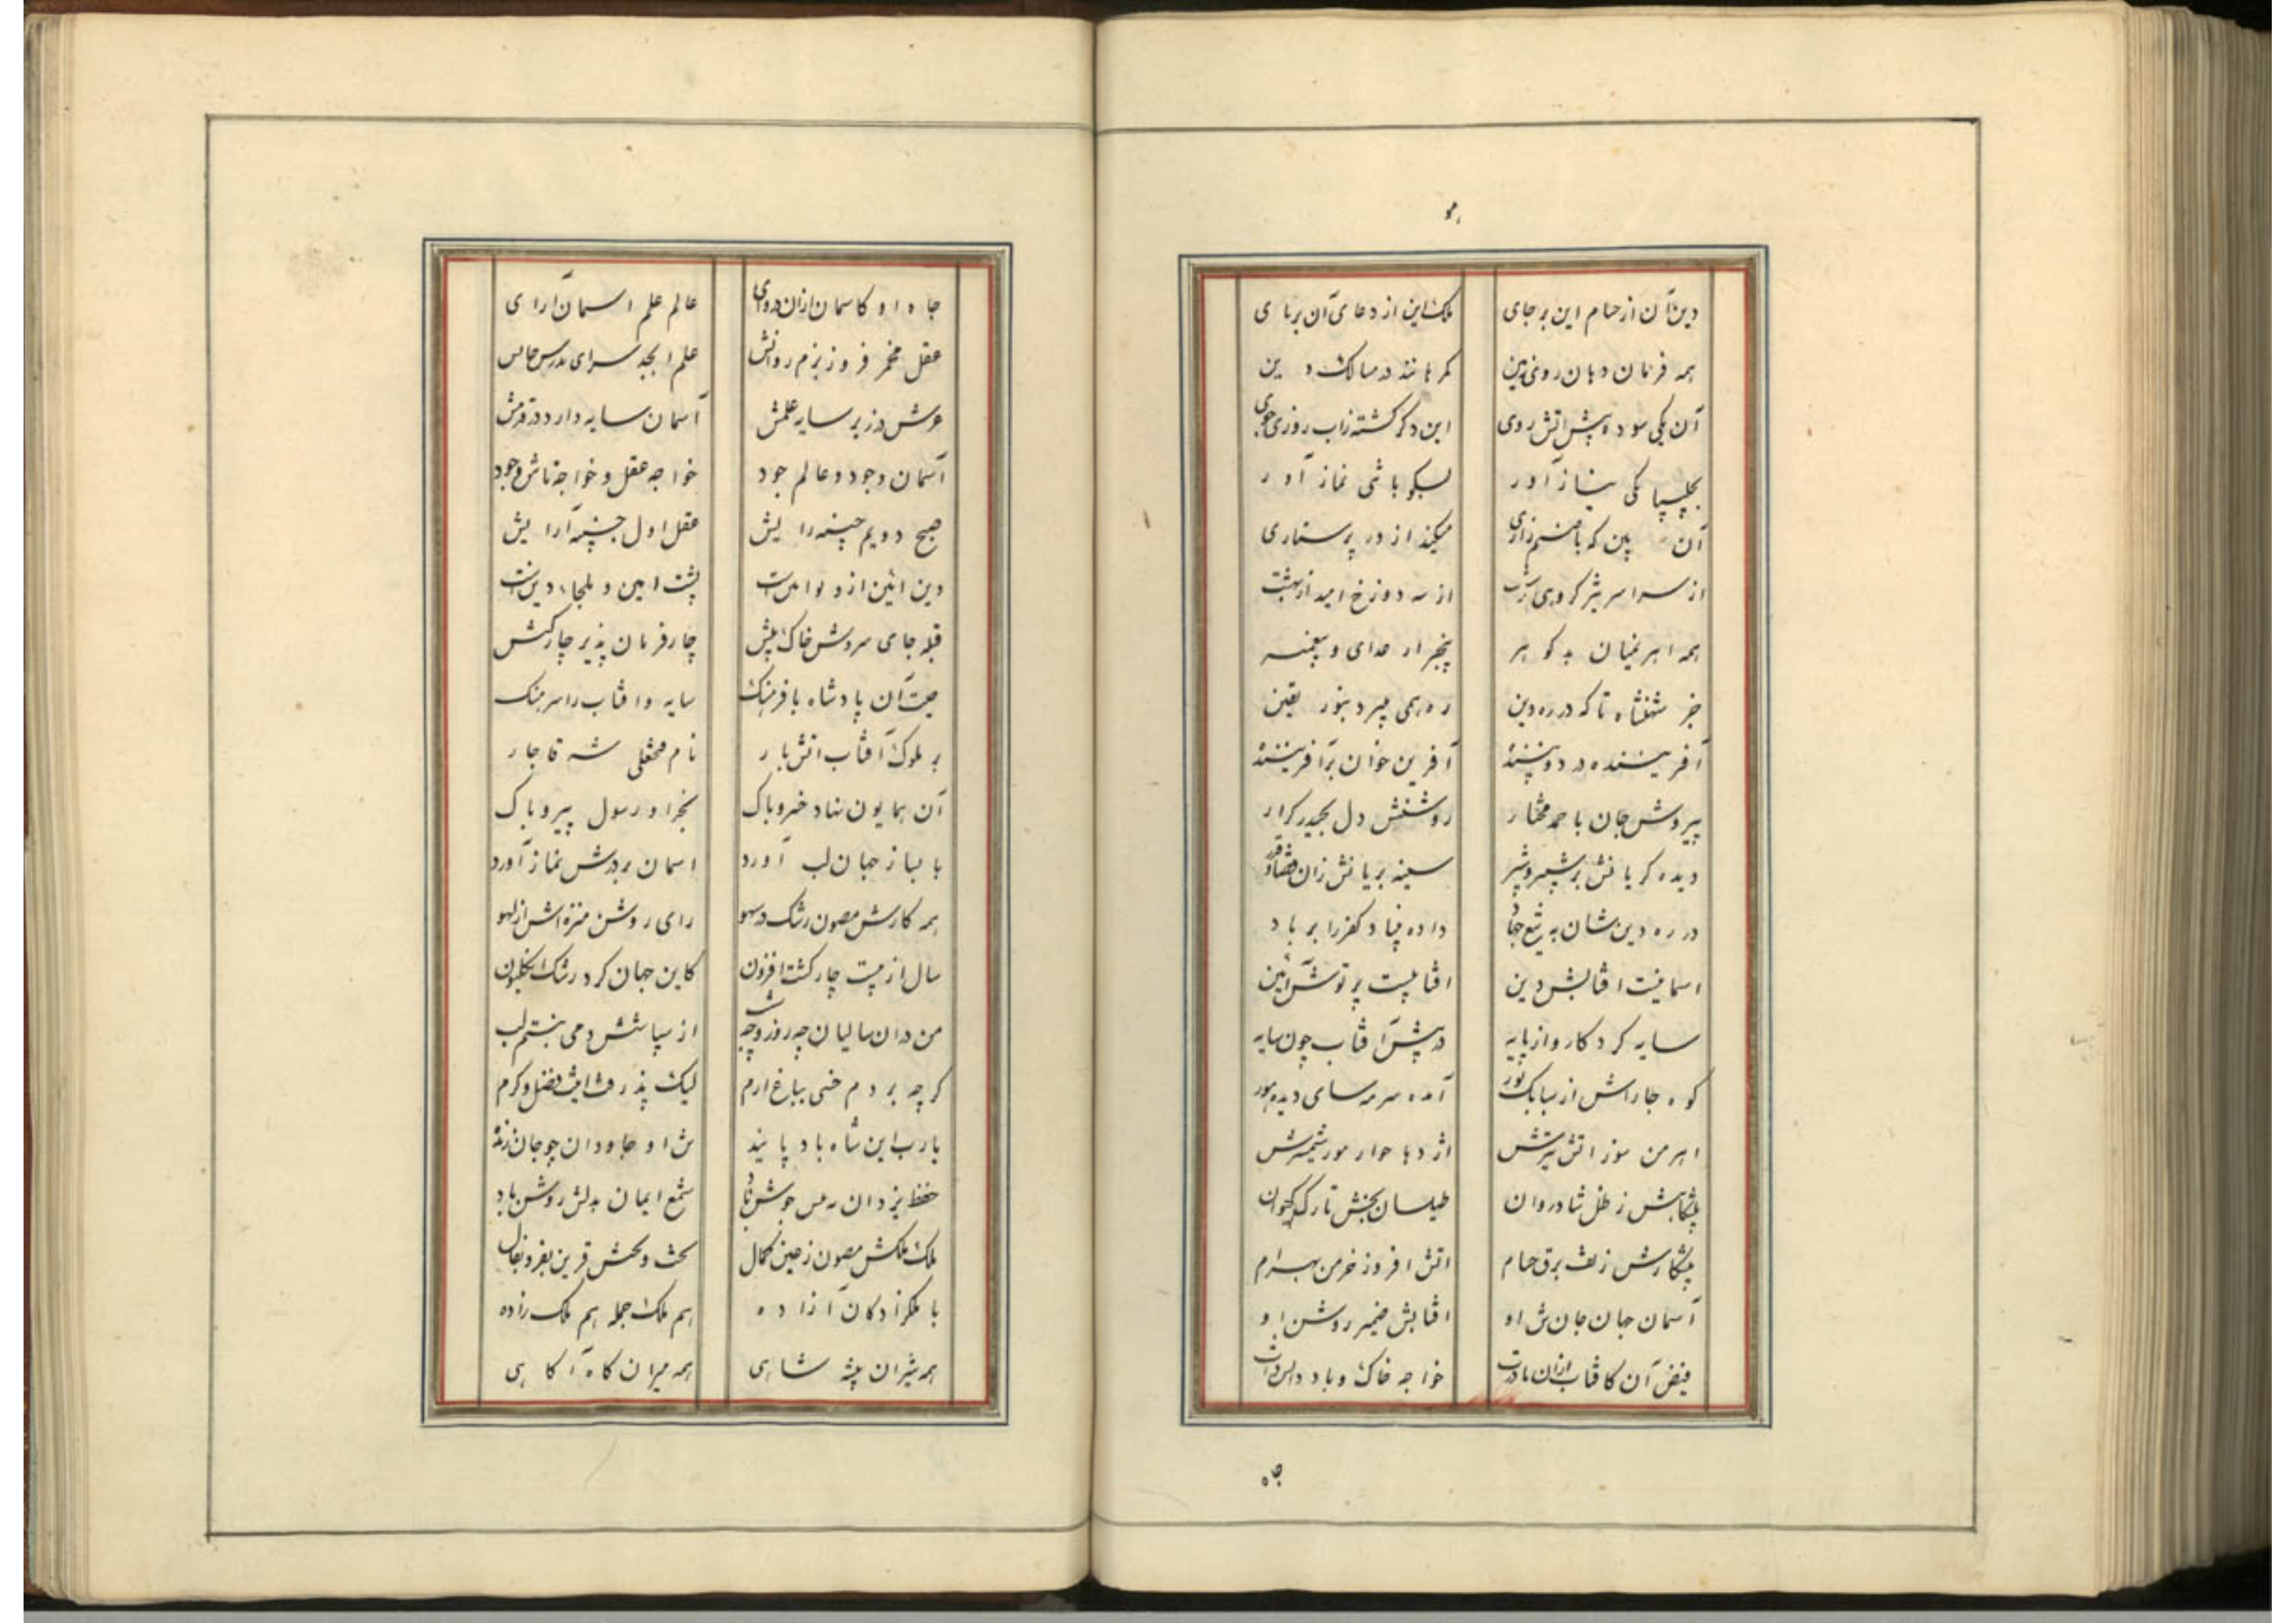 دین آن از حسام این بر جای ملک این از دعای آن بر پای
همه فرمان دهان روی زمین کمرهانند در مسالک دین
آن یکی سوده پیش آتش روی این دگر گشته زاب روزی جوی
بچلیپا یکی نیاز آور بسکوباشی نماز آور
آن بین که با صنم زاری میکند از در پرستاری
از سراسر گروهی زشت از سه دوزخ امید از بهشت
همه اهریمنان بد گوهر بیخبر از خدای و پیغمبر
جز شهنشاه تا که در ره دین ره همی سپرد بنور یقین
آفریننده در دو بیننده آفرین خوان بر آفریننده
پیروش جان باحمد مختار روشنش دل بحیدر کرار
دیده گریانش بر شبیر و شبر سینه بریانش زان قضا و قدر
در ره دین شان به تیغ جهاد داده بنیاد کفر را بر باد
اسمانیست افتابش دین افتابیست پرتوش آئین
سایه کردگار و از پایه در پیش آفتاب چون سایه
کوه جا راش از سبک نور آمده سرمه سای دیده مور
اهرمن سوز اتش تیرش اژدها خوار مور شمشیرش
پیشگاهش ز ظل شادروان طیلسان بخش تارک کیوان
پیشکارش ز تف برق حسام اتش افروز خرمن بهرام
آسمان جهان جان ش او افتابش ضمیر روشن او
فیض آن کافتاب ازان خواجه خاک و باد و
جاه
جاه او کاسمان ازان دروای عالم علم اسمان آرای
عقل مجمر فروز بزم روانش علم ابجد سرای مدرس جانش
عرش در زیر سایه علمش آسمان سایه دار در قدمش
آسمان وجود و عالم جود خواجه عقل و خواجه تاش وجود
صبح دویم جبینه رایش عقل اول جنیبه آرایش
دین ائین از و نوا پشت امین و ملجاء دین
قبله جای سروش خاک پیش چار فرمان پذیر چار کش
چیست آن پادشاه با فرهنگ سایه و افتاب را سرهنگ
بر ملوک آفتاب اتش بار نام فتحعلی شه قاجار
آن همایون نهاد خسرو پاک بخدا و رسول پیرو پاک
با نیاز جهان لب آورد اسمان بر درش نماز آورد
همه کارش مصون رشک و سهو رای روشن منزه اش از لهو
سال از بیست چار گشت افزون کاین جهان کرد رشک انگلیون
من دران سالیان چه روز و چه شب از سپاسش دمی نبستم لب
گر چه بردم خسی بباغ ارم لیک پذرفت ایت فضل و کرم
یارب این شاه باد پاینده ش او جاودان چو جان زنده
حفظ یزدان به تن جوشن باد شمع ایمان بدلش روشن باد
ملک ملکش مصون ز عین کمال بخت و تختش قرین بفر و بفال
با ملکزادگان آزاده هم ملک جمله هم ملک زاده
همه شیران بیشه شاهی همه میران گاه آگاهی